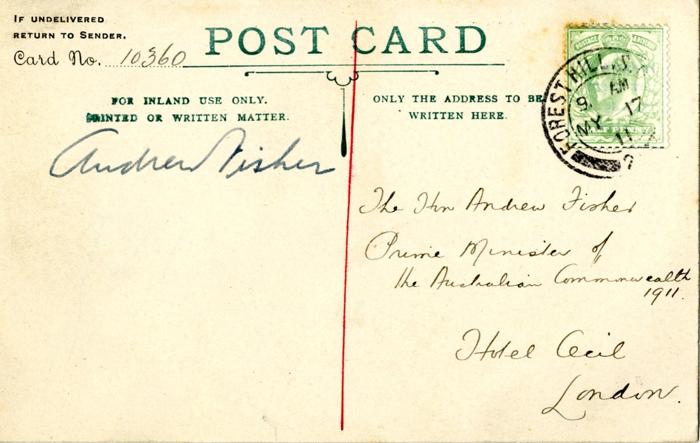 IF UNDELIVERED
RETURN TO SENDER.
Card No. 10360
POST CARD
FOR INLAND USE ONLY.
PRINTED OR WRITTEN MATTER.
ONLY THE ADDRESS TO BE
WRITTEN HERE.
FOREST HILL. S.
9. AM
MY 17
11
Andrew Fisher
The Hon Andrew Fisher
Prime Minister of
the Australian Commonwealth
1911.
Hotel Cecil
London.